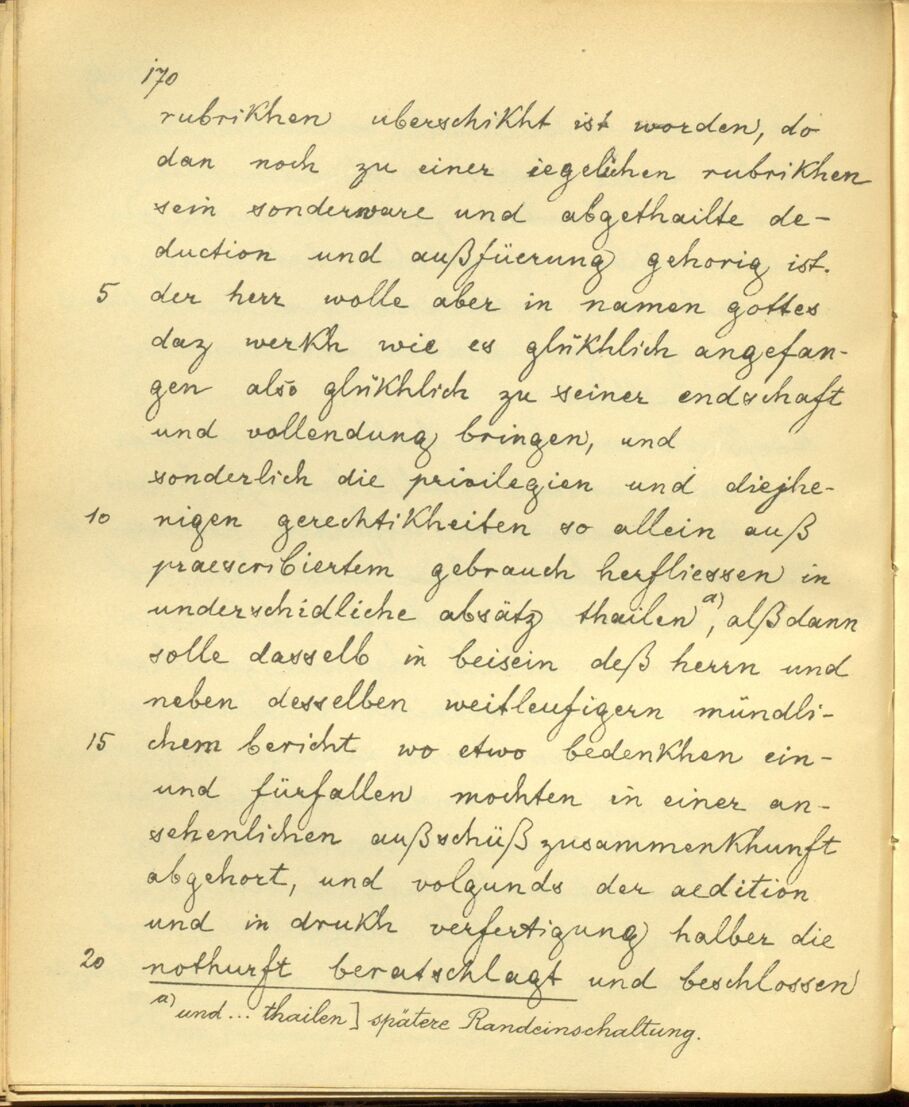 170
rubrikhen uberschikht ist worden, do
dan noch zu einer iegelichen rubrikhen
sein sonderware und abgethailte de-
duction und außfüerung gehorig ist.
5 der herr wolle aber in namen gottes
daz werkh wie es glükhlich angefan-
gen also glükhlich zu seiner endschaft
und vollendung bringen, und
sonderlich die privilegien und diejhe-
10 nigen gerechtikheiten so allein auß
praescribiertem gebrauch herfliessen in
underschidliche absätz thailen a), alßdann
solle dasselb in beisein deß herrn und
neben desselben weitleufigern mündli-
15 chem bericht wo etwo bedenkhen ein-
und fürfallen mochten in einer an-
sehenlichen außschüß zusammenkhunft
abgehort, und volgunds der aedition
und in drukh verfertigung halber die
20 nothurft beratschlagt und beschlossen
a) und... thailen] spätere Randeinschaltung.